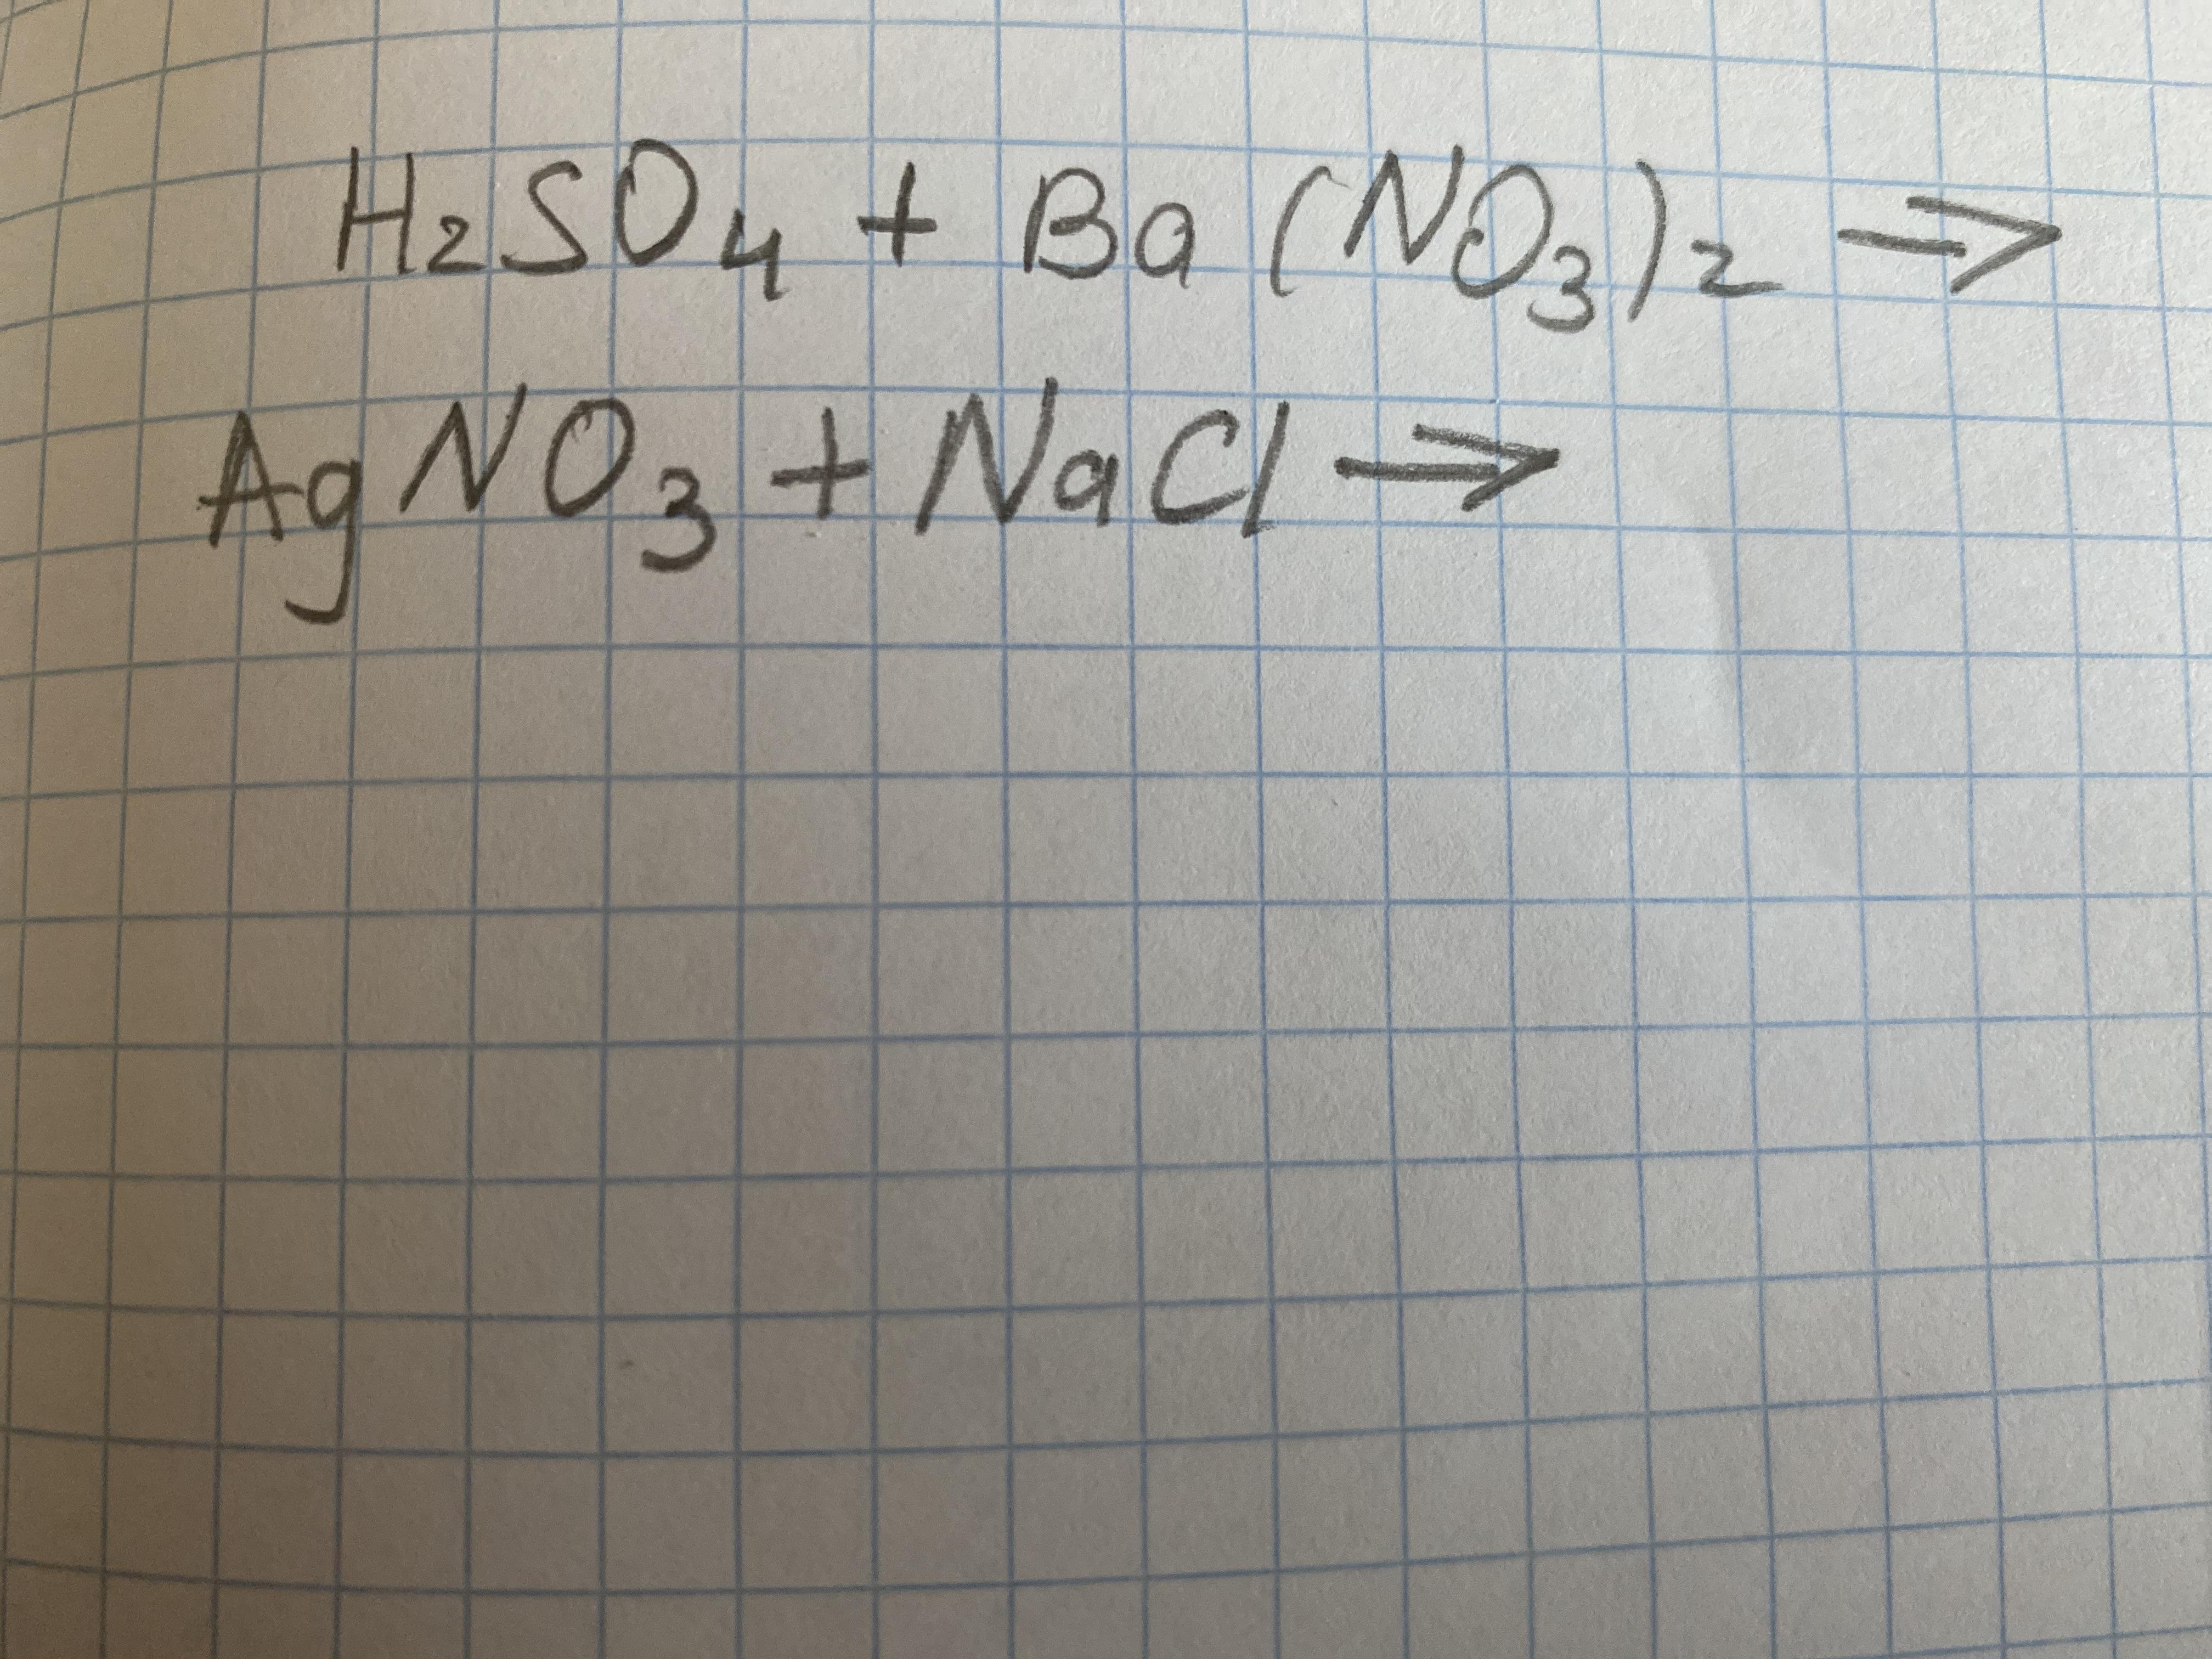 H₂SO₄ + Ba(NO₃)₂ ⇒
AgNO₃ + NaCl ⇒